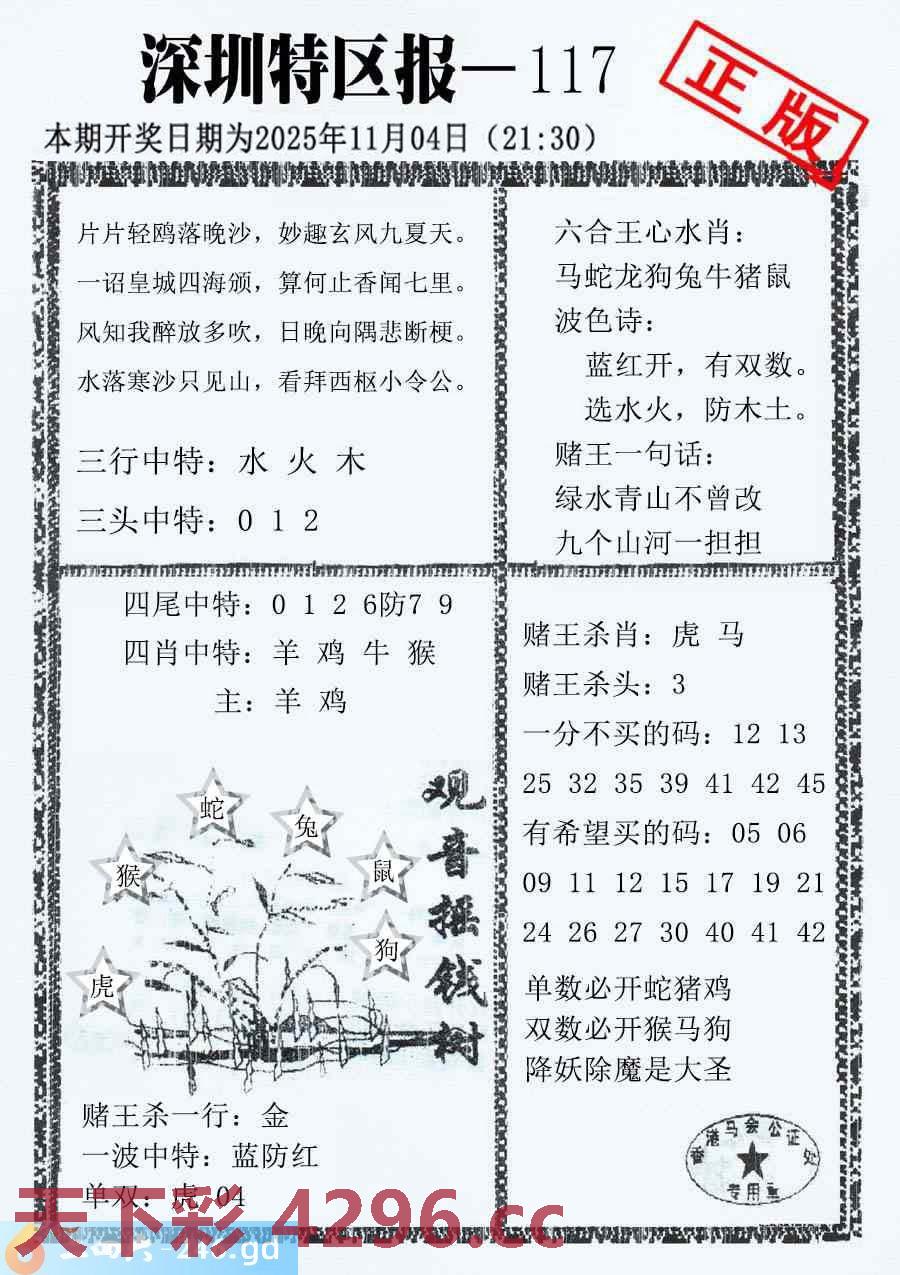 深圳特区报—117
正版
本期开奖日期为2025年11月04日（21:30）
片片轻鸥落晚沙，妙趣玄风九夏天。
一诏皇城四海颁，算何止香闻七里。
风知我醉放多吹，日晚向隅悲断梗。
水落寒沙只见山，看拜西枢小令公。
三行中特：水 火 木
三头中特：0 1 2
六合王心水肖：
马蛇龙狗兔牛猪鼠
波色诗：
蓝红开，有双数。
选水火，防木土。
赌王一句话：
绿水青山不曾改
九个山河一担担
四尾中特：0 1 2 6防7 9
四肖中特：羊 鸡 牛 猴
主：羊 鸡
蛇
兔
猴
鼠
狗
虎
观音摇钱树
赌王杀一行：金
一波中特：蓝防红
单双：虎 04
赌王杀肖：虎 马
赌王杀头：3
一分不买的码：12 13
25 32 35 39 41 42 45
有希望买的码：05 06
09 11 12 15 17 19 21
24 26 27 30 40 41 42
单数必开蛇猪鸡
双数必开猴马狗
降妖除魔是大圣
香港马会公证处
专用章
天下彩 4296.cc